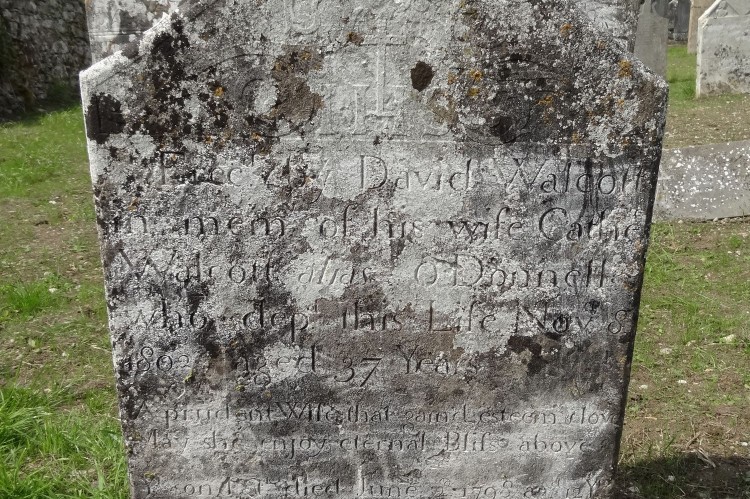 IHS
Erec'd by David Walcott
in mem of his wife Cath'e
Walcott alias O'Donnell
who dep't this Life Nov 8
1803 aged 37 Years
A prudent Wife that gaind esteem & love
May she enjoy eternal Bliss above
died June 1798